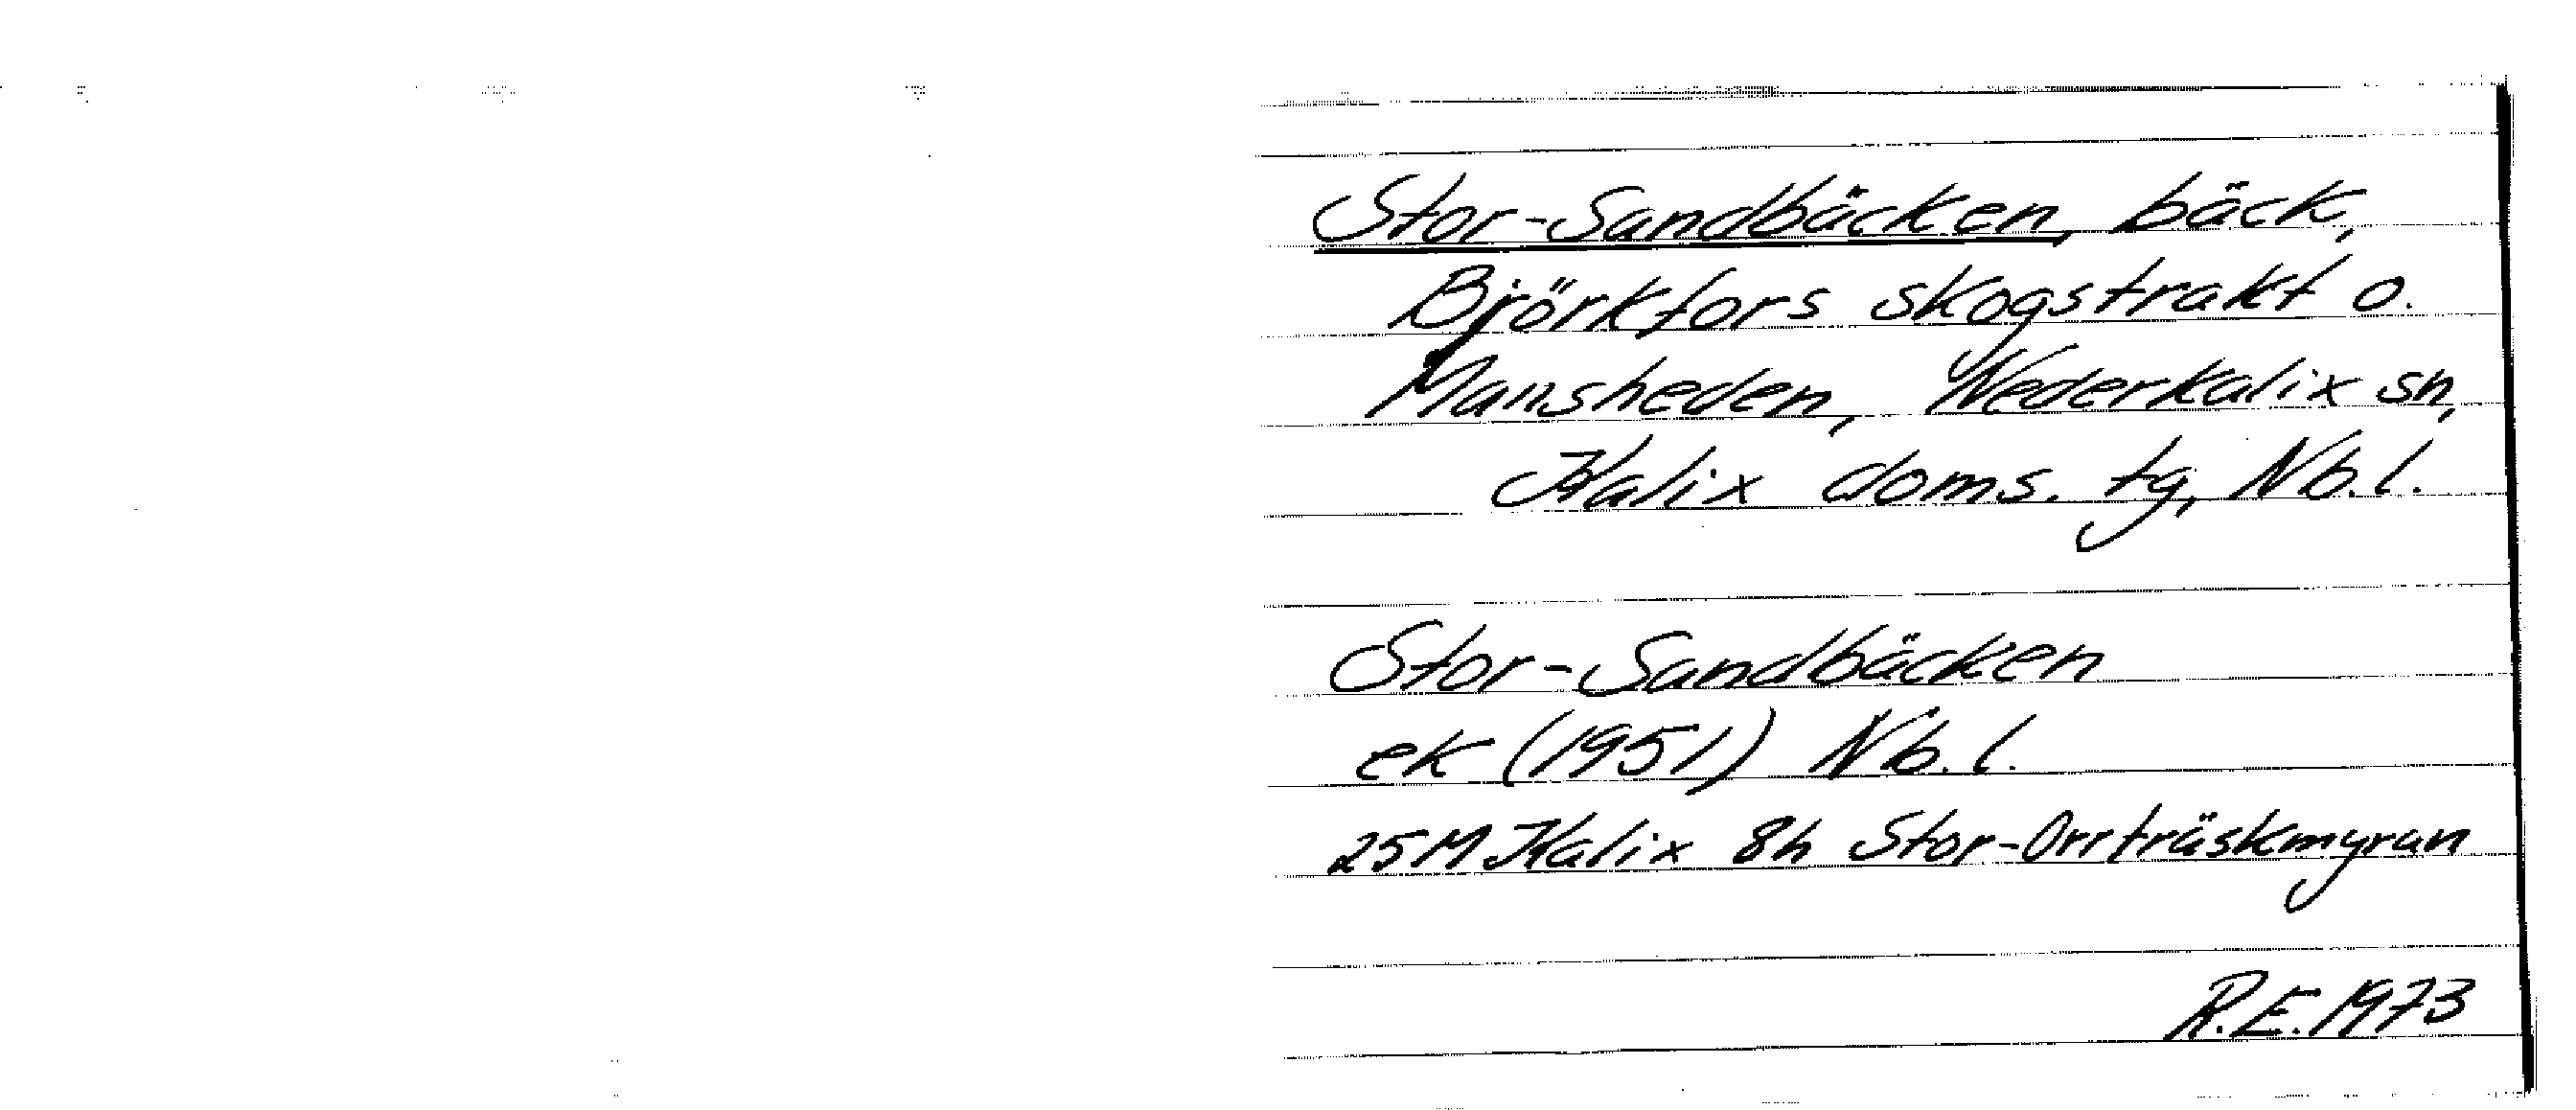 Stor-Sandbäcken, bäck,
Björkfors skogstrakt o.
Mansheden, Nederkalix sn,
Kalix doms. tg, Nb.l.
Stor-Sandbäcken
ek (1951) Nb.l.
25M Kalix 8h Stor-Orrträskmyran
R.E. 1973